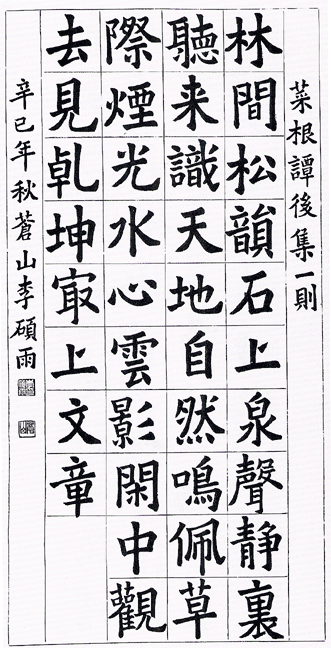 菜根譚後集一則
林間松韻石上泉聲静裏
聽来識天地自然鳴佩草
際煙光水心雲影閑中觀
去見乹坤㝡上文章
辛巳年秋蒼山李碩雨